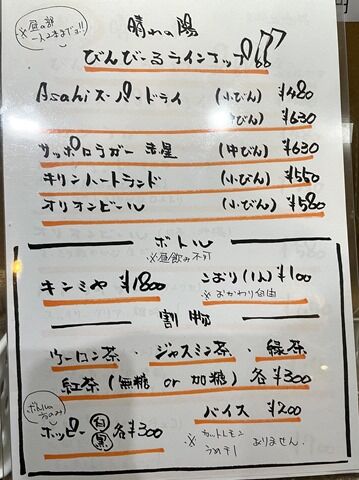 ※昼の部
一人2本まで!!
晴れの陽
びんびーるラインナップ!!
Asahiスーパードライ (小びん) ¥480
(中びん) ¥630
サッポロラガー 赤星 (中びん) ¥630
キリンハートランド (小びん) ¥550
オリオンビール (小びん) ¥580
ボトル
※昼飲み不可
キンミヤ ¥1800 こおり(1人) ¥100
※おかわり自由
割物
ウーロン茶・ジャスミン茶・緑茶
紅茶(無糖 or 加糖) 各¥300
ボトルの方のみ
ホッピー 白 黒 各¥300 バイス ¥200
※カットレモン
うめ干し ありません
円